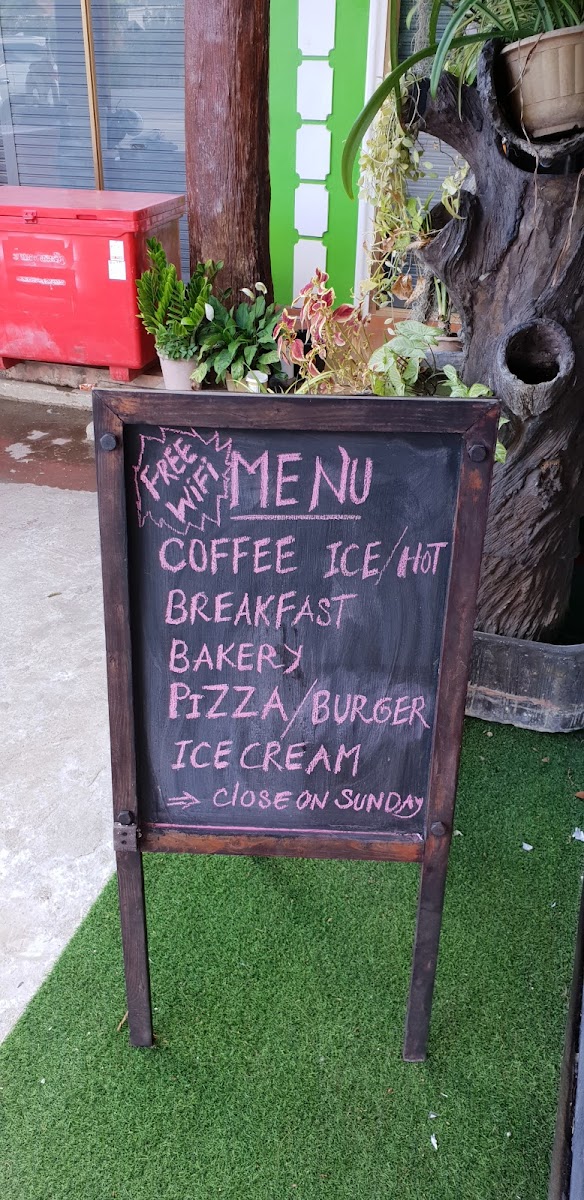 FREE
WiFi
MENU
COFFEE ICE/HOT
BREAKFAST
BAKERY
PIZZA/BURGER
ICE CREAM
⇒ CLOSE ON SUNDAY